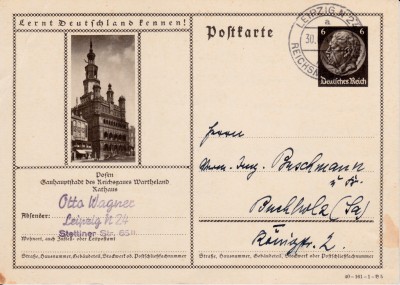 Lernt Deutschland kennen!
Postkarte
LEIPZIG N 24
a
30.
REICHSM
6 6
Deutsches Reich
Posen
Gauhauptstadt des Reichsgaues Wartheland
Rathaus
Absender:
Otto Wagner
Leipzig N 24
Stettiner Str. 65
Wohnort, auch Zustell- oder Leitpostamt
Straße, Hausnummer, Gebäudeteil, Stockwerk od. Postschließfachnummer
Herrn
Buschmann
Buchholz (Sa)
Königstr. 2.
Straße, Hausnummer, Gebäudeteil, Stockwerk oder Postschließfachnummer